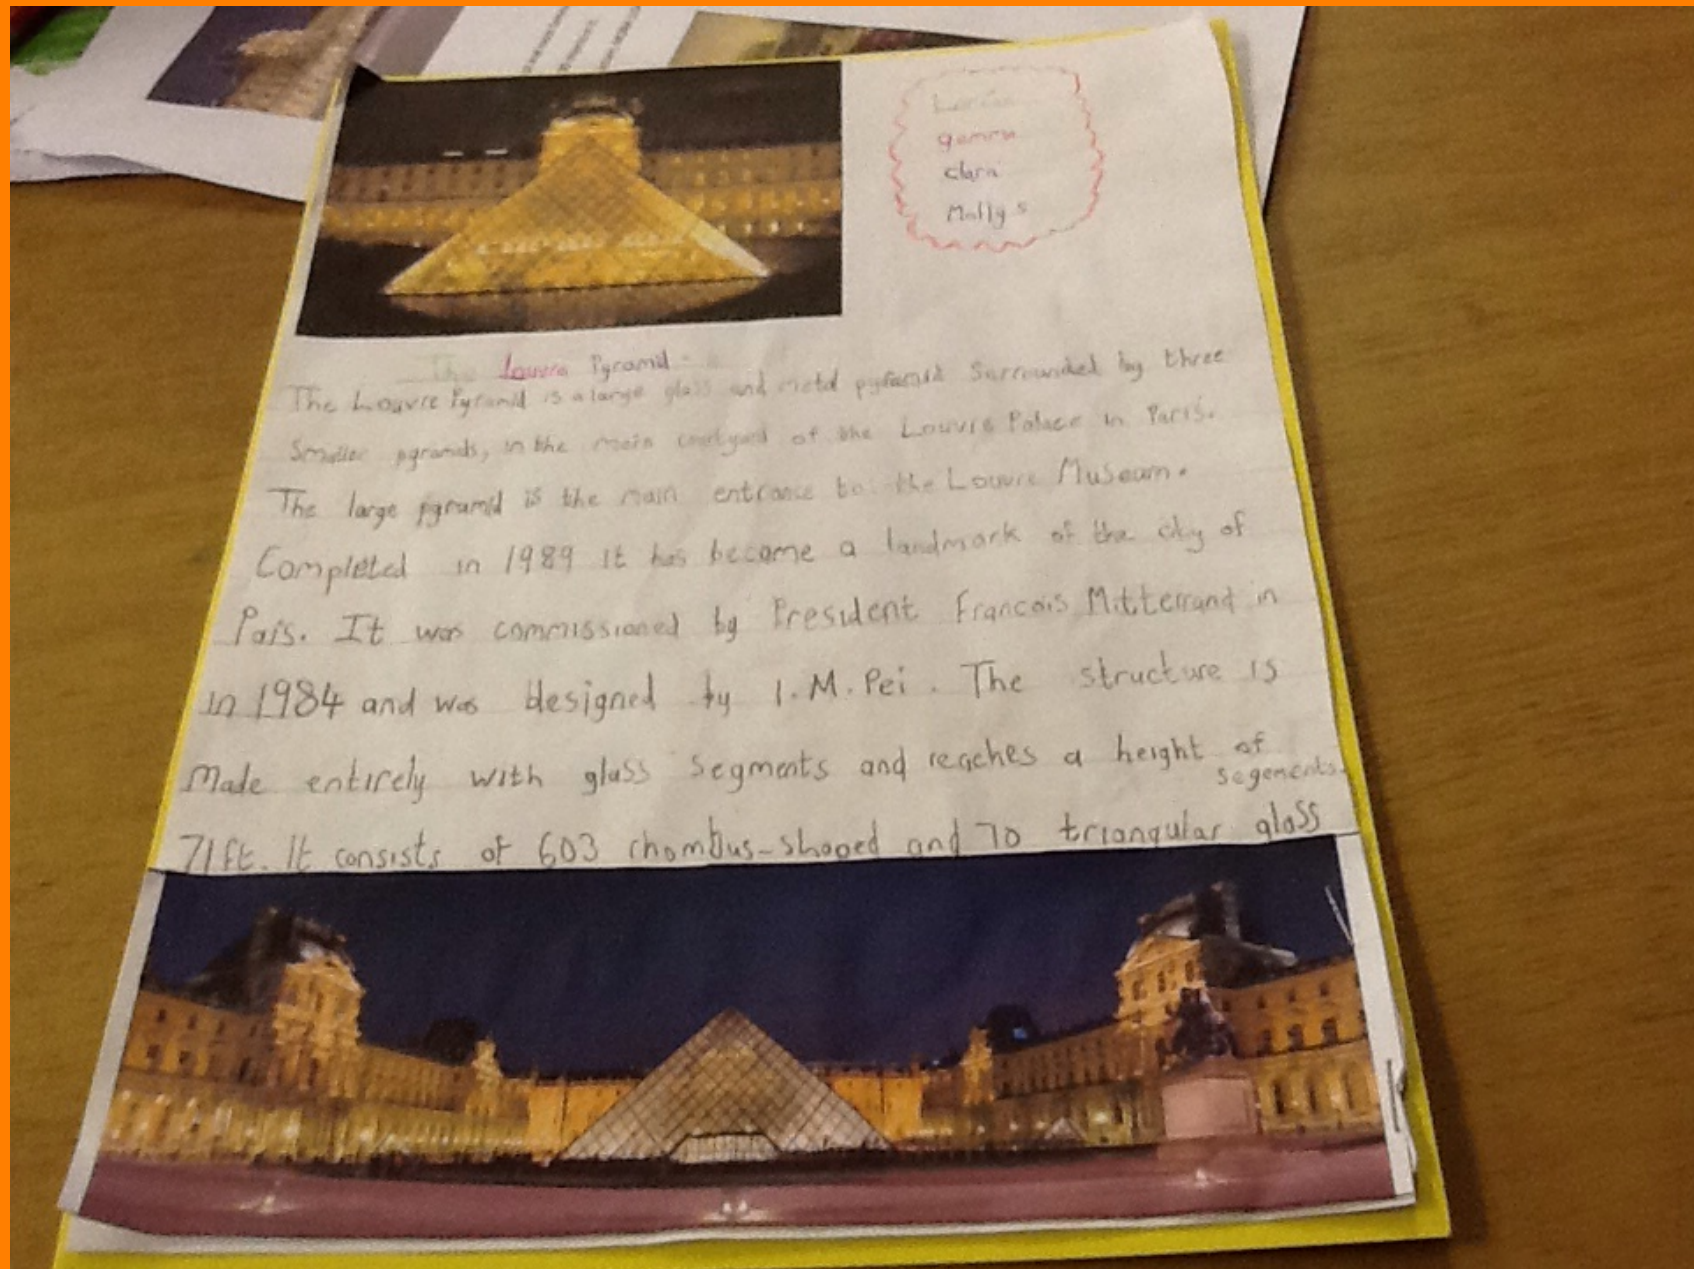 gemma
Clara
Molly s
The Louvre Pyramid
The Louvre Pyramid is a large glass and metal pyramid Surrounded by three
Smaller pyramids, in the main courtyard of the Louvre Palace in Paris.
The large pyramid is the main entrance to the Louvre Museum.
Completed in 1989 it has become a landmark of the city of
Pais. It was commissioned by President Francois Mitterrand in
in 1984 and was designed by I.M.Pei. The structure is
Made entirely with glass segments and reaches a height of
segements.
71ft. It consists of 603 rhombus-shaped and 70 triangular glass